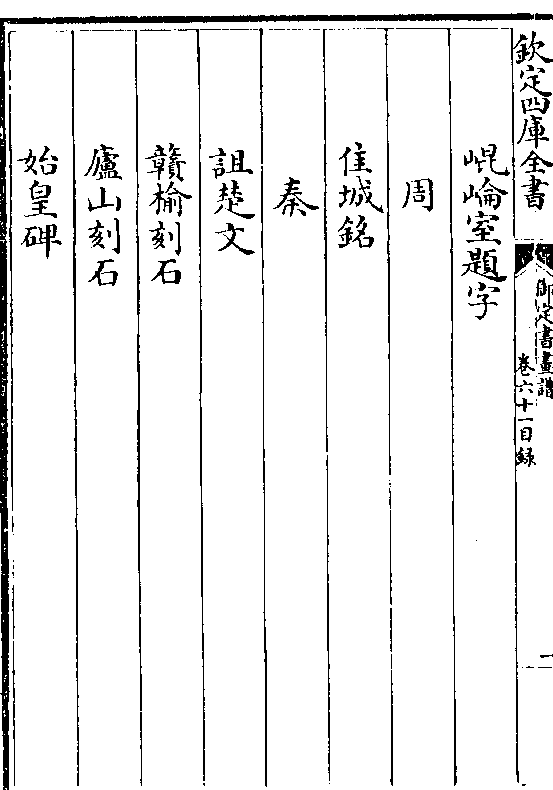 欽定四庫全書
御定書畫譜
卷六十一目録
一
崐崘室題字
周
佳城銘
秦
詛楚文
贛榆刻石
廬山刻石
始皇碑